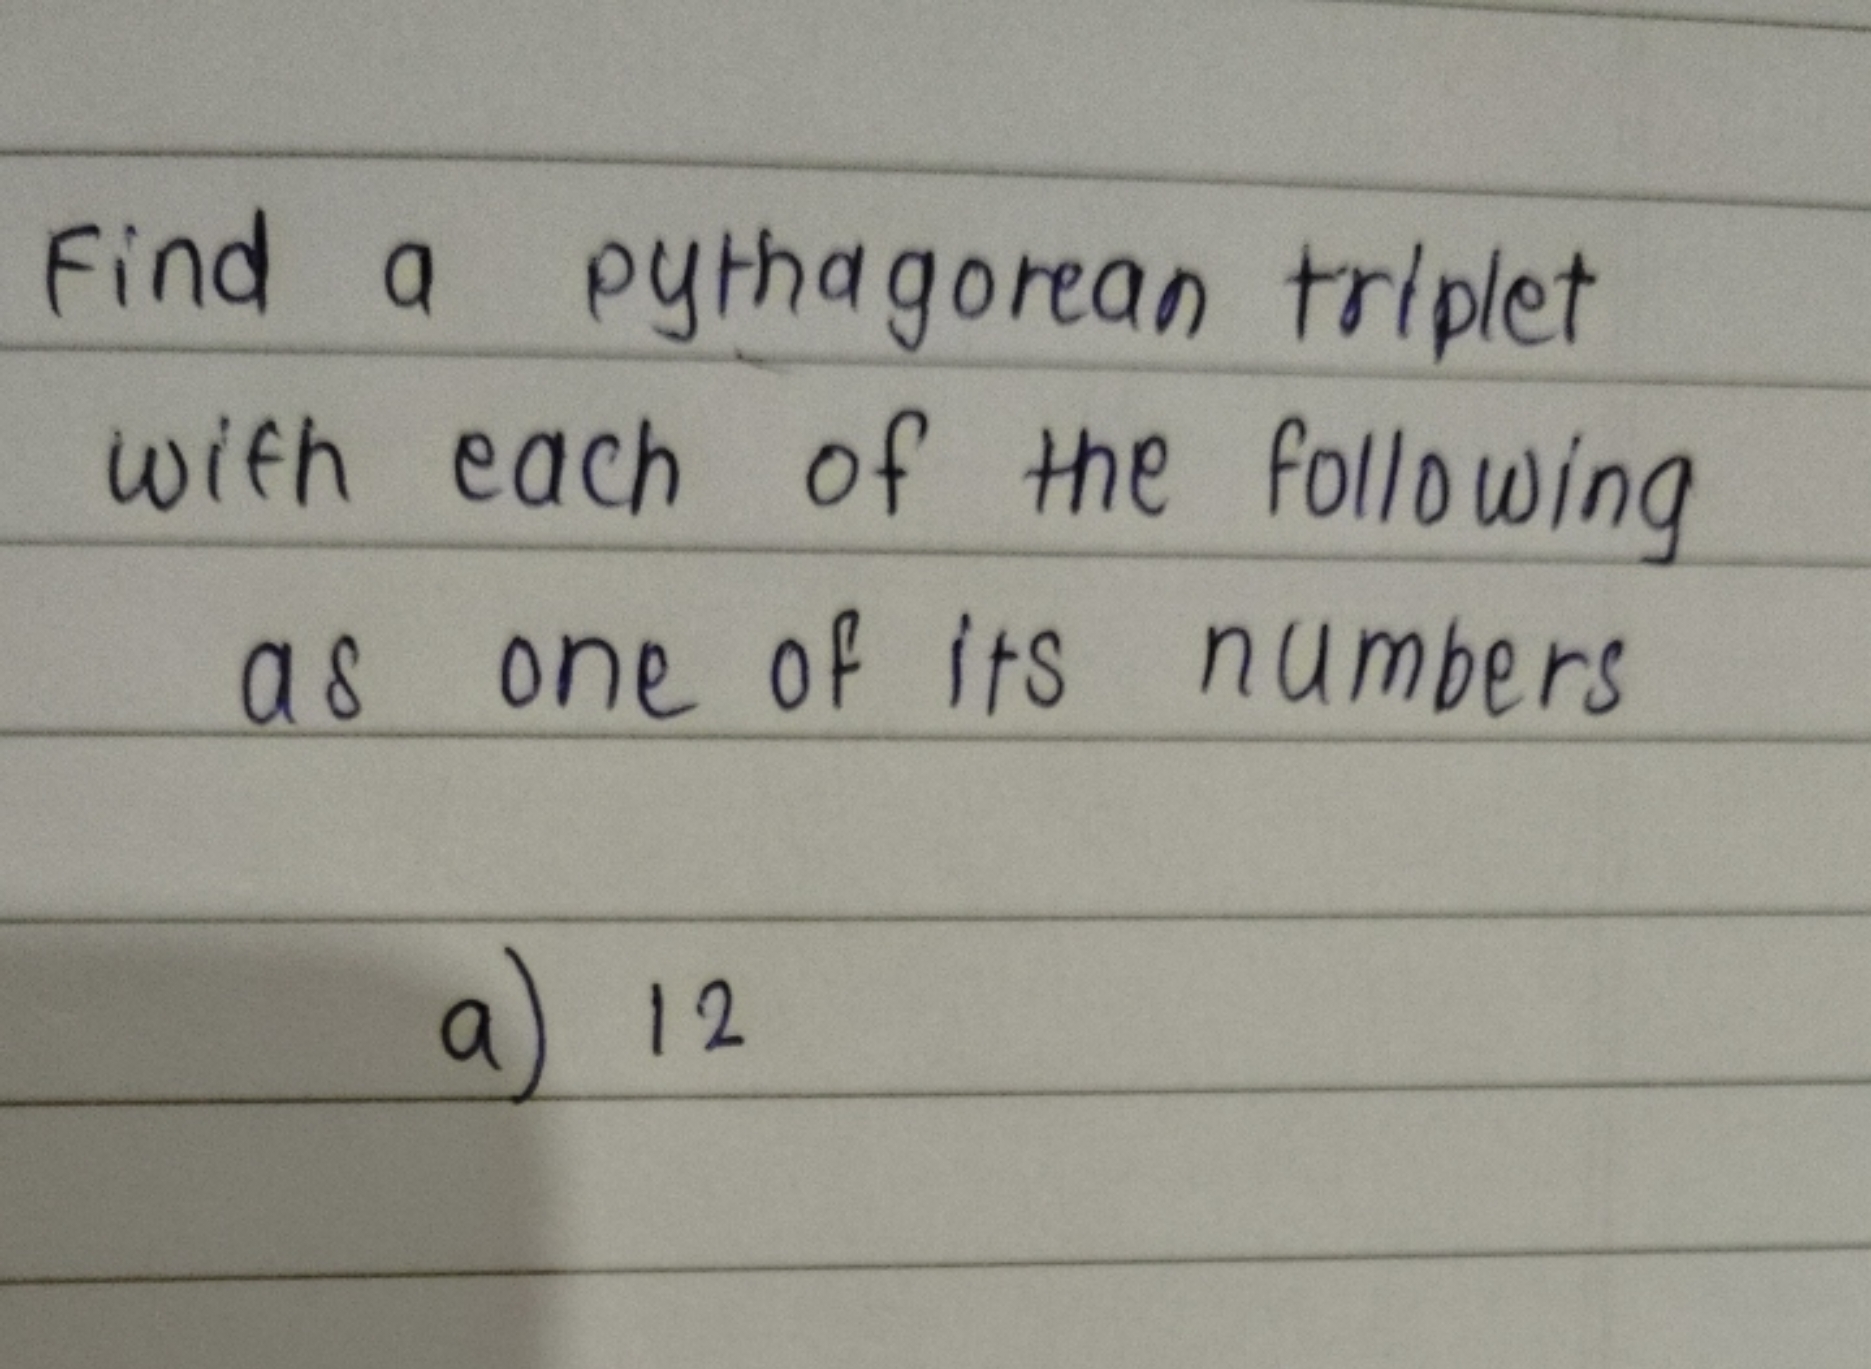 Find a pythagorean triplet
with each of the following
as one of its numbers
a) 12